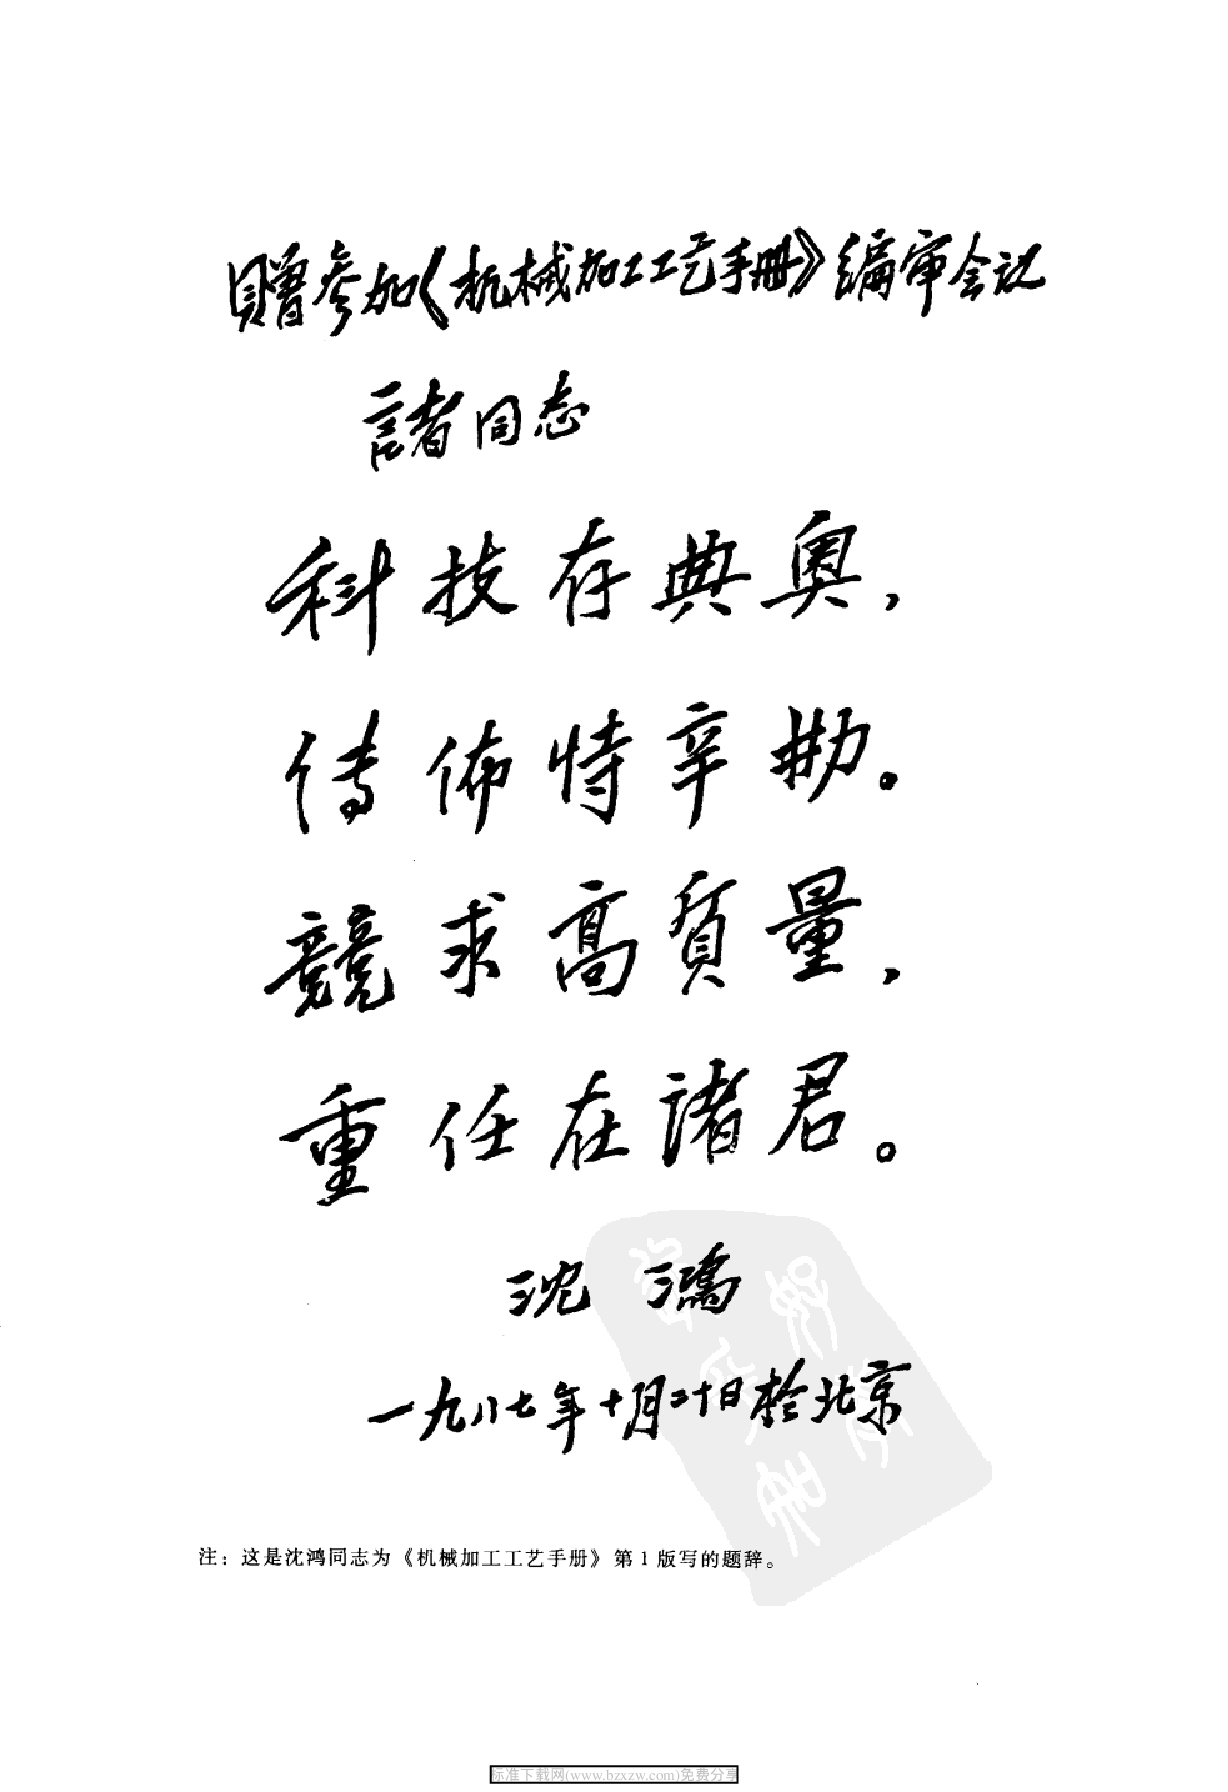 贈参加《机械加工工艺手册》编审会议
諸同志
科技存典奥，
传佈恃辛勤。
競求高質量，
重任在諸君。
沈鴻
一九八七年十月二十日於北京
注：这是沈鸿同志为《机械加工工艺手册》第1版写的题辞。
标准下载网(www.bzxzw.com)免费分享